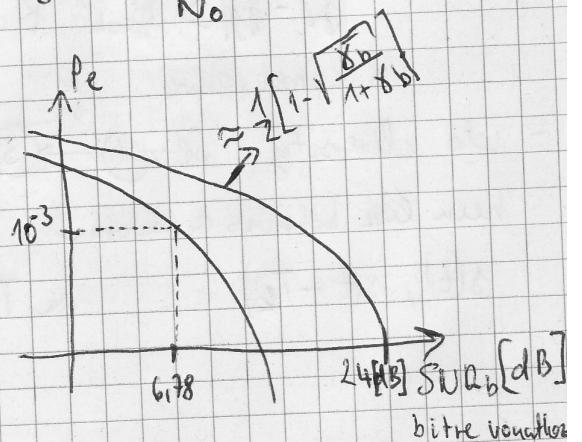 N₀
Pe
≈ 1/2 [1 - √(γb / 1+γb)]
10⁻³
6,78
24[dB] SNRb [dB]
bitre